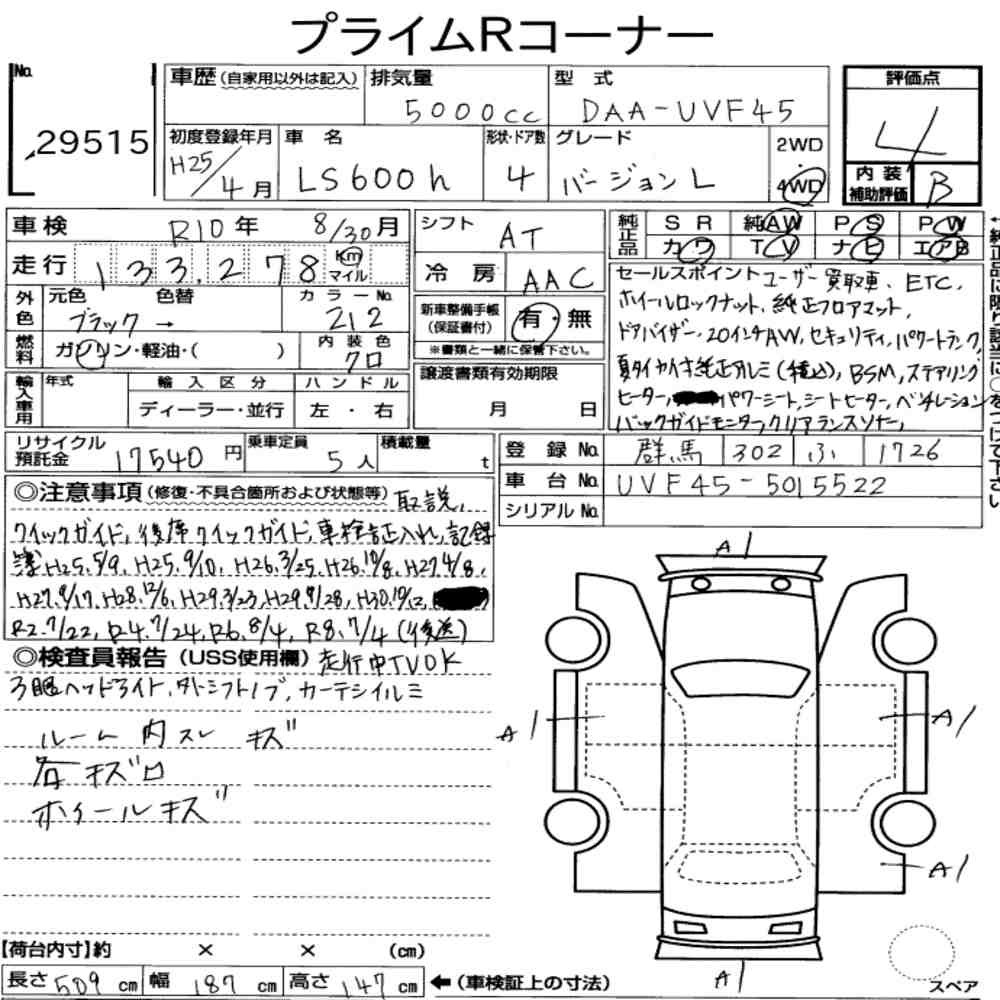 プライムRコーナー
No.
29515
車歴(自家用以外は記入)
排気量
5000cc
型式
DAA-UVF45
評価点
4
初度登録年月
H25/4月
車名
LS600h
形状・ドア数
4
グレード
バージョンL
2WD
4WD
内装補助評価
B
車検
R10年 8/30月
走行
133,278
Km
マイル
シフト
AT
冷房
AAC
純正品
SR 純AW PS PW
カワ TV ナビ エアB
外色
元色 色替
ブラック→
カラーNo.
212
燃料
ガソリン・軽油・( )
内装色
クロ
新車整備手帳(保証書付)
有・無
※書類と一緒に保管下さい。
セールスポイント ユーザー買取車、ETC、
ホイールロックナット、純正フロアマット、
ドアバイザー、20インチAW、セキュリティ、パワートランク、
夏タイヤ付き純正アルミ(積込)、BSM、ステアリング
ヒーター、パワーシート、シートヒーター、ベンチレーション
バックガイドモニター、クリアランスソナー、
輸入車用
年式
輸入区分
ディーラー・並行
ハンドル
左・右
譲渡書類有効期限
月 日
リサイクル預託金
17540円
乗車定員
5人
積載量
t
登録No.
群馬 302 ふ 1726
車台No.
UVF45-5015522
シリアルNo.
◎注意事項(修復・不具合箇所および状態等) 取説、
クイックガイド、後席クイックガイド、車検証入れ、記録
簿H25.5/9、H25.9/10、H26.3/25、H26.10/8、H27.4/8、
H27.9/17、H28.12/6、H29.3/23、H29.8/28、H30.10/12、
R2.7/22、R4.7/24、R6.8/4、R8.7/4(後送)
◎検査員報告(USS使用欄) 走行中TVOK
3眼ヘッドライト、タトシフトノブ、カーテシイルミ
ルーム内スレ キズ
各キズ口
ホイールキズ
A1
A1
A1
A1
A1
スペア
【荷台内寸】約 × × (cm)
長さ509cm 幅187cm 高さ147cm ←(車検証上の寸法)